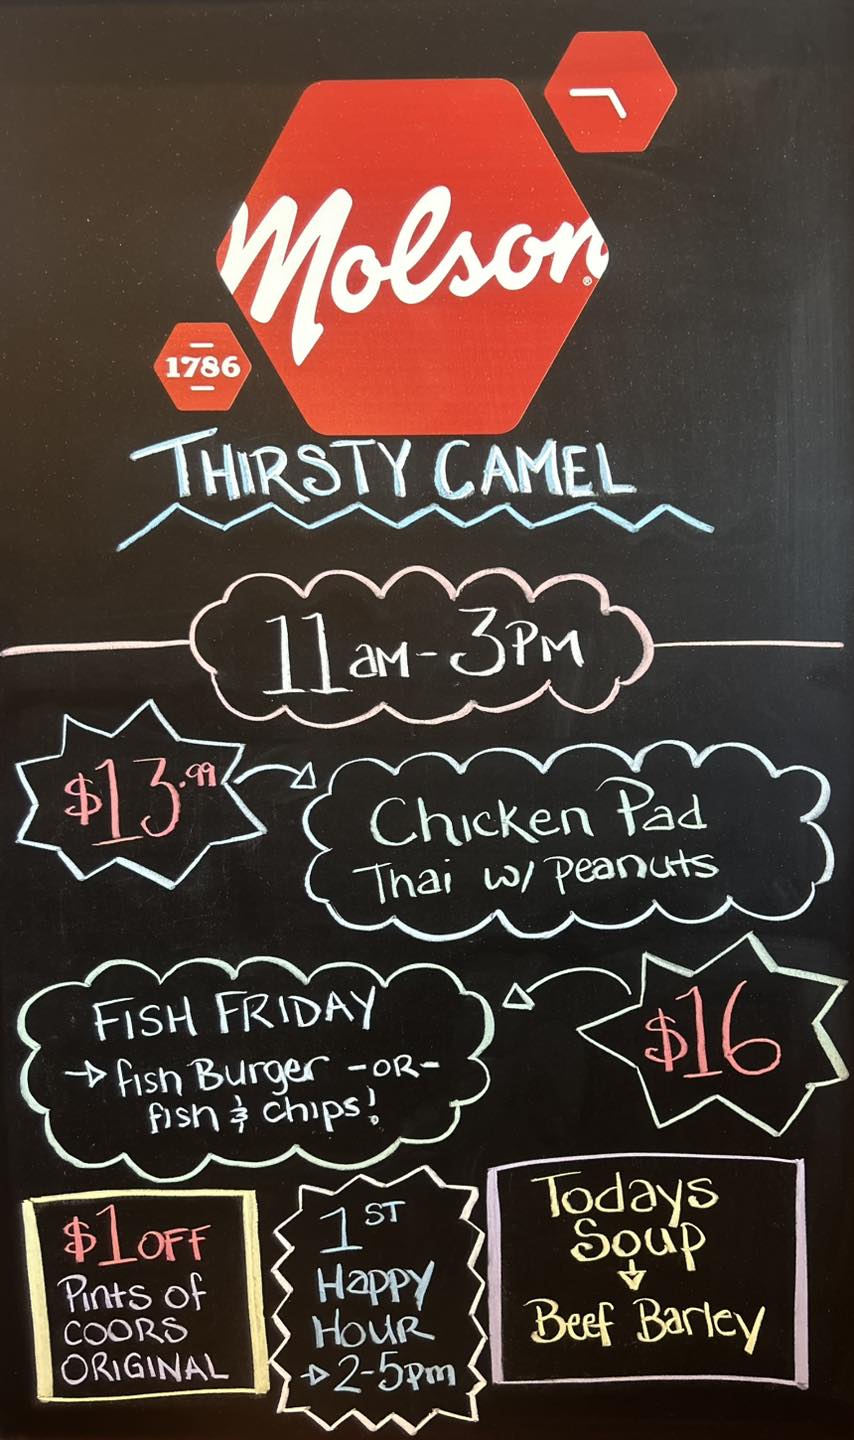 Molson®
1786
THIRSTY CAMEL
11am - 3PM
$13.99
Chicken Pad
Thai w/ peanuts
FISH FRIDAY
→ fish Burger -OR-
fish & chips!
$16
$1 OFF
Pints of
COORS
ORIGINAL
1ST
Happy
HOUR
→ 2-5pm
Todays
Soup
↓
Beef Barley